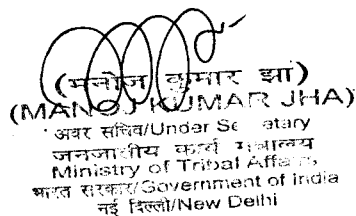 (मनोज कुमार झा)
(MANOJ KUMAR JHA)
अवर सचिव/Under Se etary
जनजातीय कार्य मंत्रालय
Ministry of Tribal Affairs
भारत सरकार/Government of India
नई दिल्ली/New Delhi